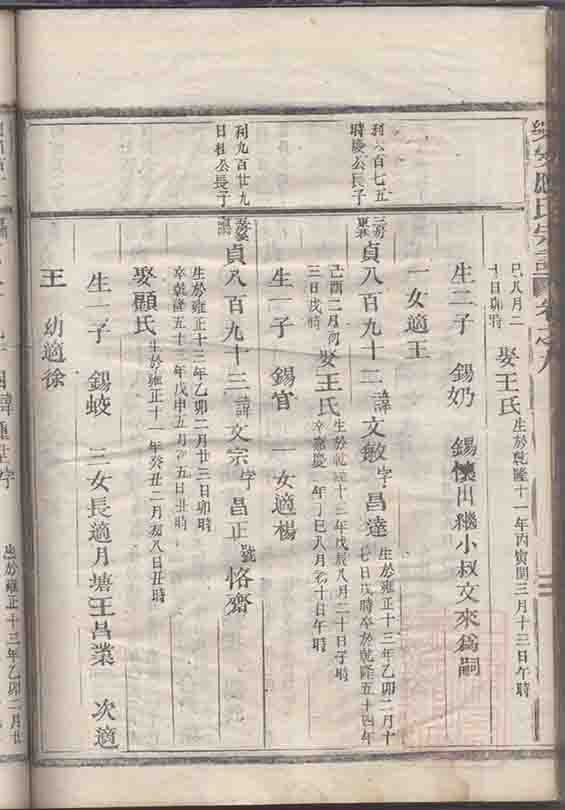 應氏宗譜 卷之九
巳八月二
十日卯時
娶王氏
生於乾隆十一年丙寅閏三月十三日午時
生二子 錫奶 錫懷出繼小叔文來為嗣
一女適王
利八百七五
時慶公長子
貞八百九十二諱文敏字昌達
生於雍正十三年乙卯二月十
七日戌時卒於乾隆五十四年
己酉二月初
三日戌時
娶王氏
生於乾隆十三年戊辰八月二十日子時
卒嘉慶二年丁巳八月初十日午時
生一子 錫官 一女適楊
利九百廿九
日桂公長子
貞八百九十三諱文宗字昌正號恪齋
生於雍正十三年乙卯二月廿三日卯時
卒乾隆五十三年戊申五月廿五日丑時
娶顧氏
生於雍正十一年癸丑二月初八日丑時
生一子 錫蛟 三女長適月塘王昌業 次適
王 幼適徐
生於雍正十三年乙卯二月廿